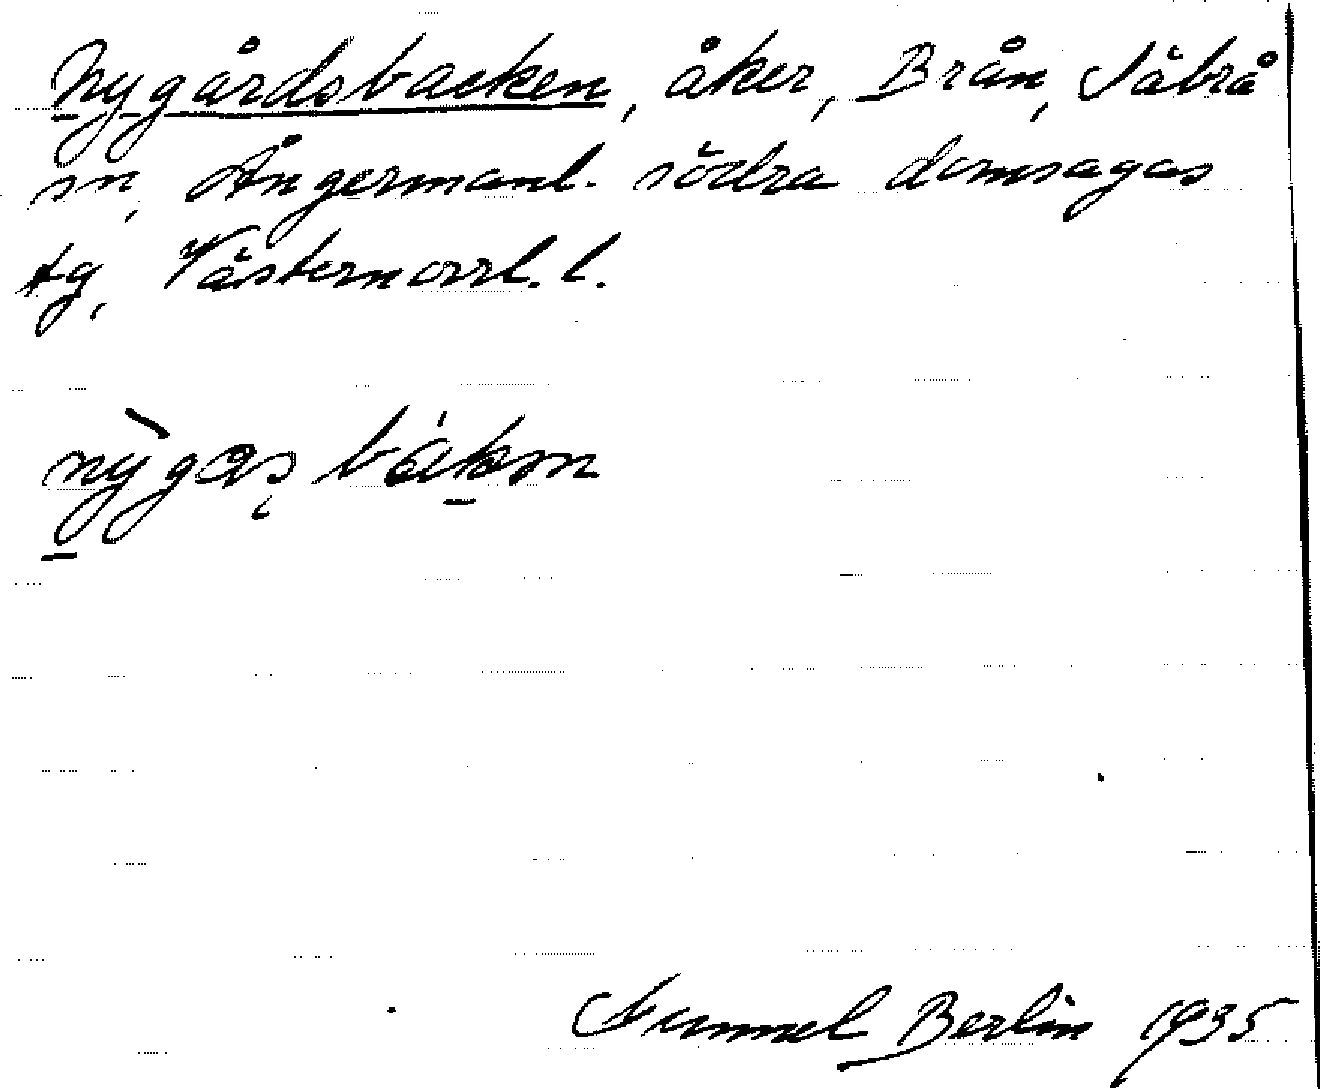 Nygårdsbacken, åker, Brån, Säbrå
sn, Ångermanl. södra domsagas
tg, Västernorrl. l.
Gunnel Berlin 1935